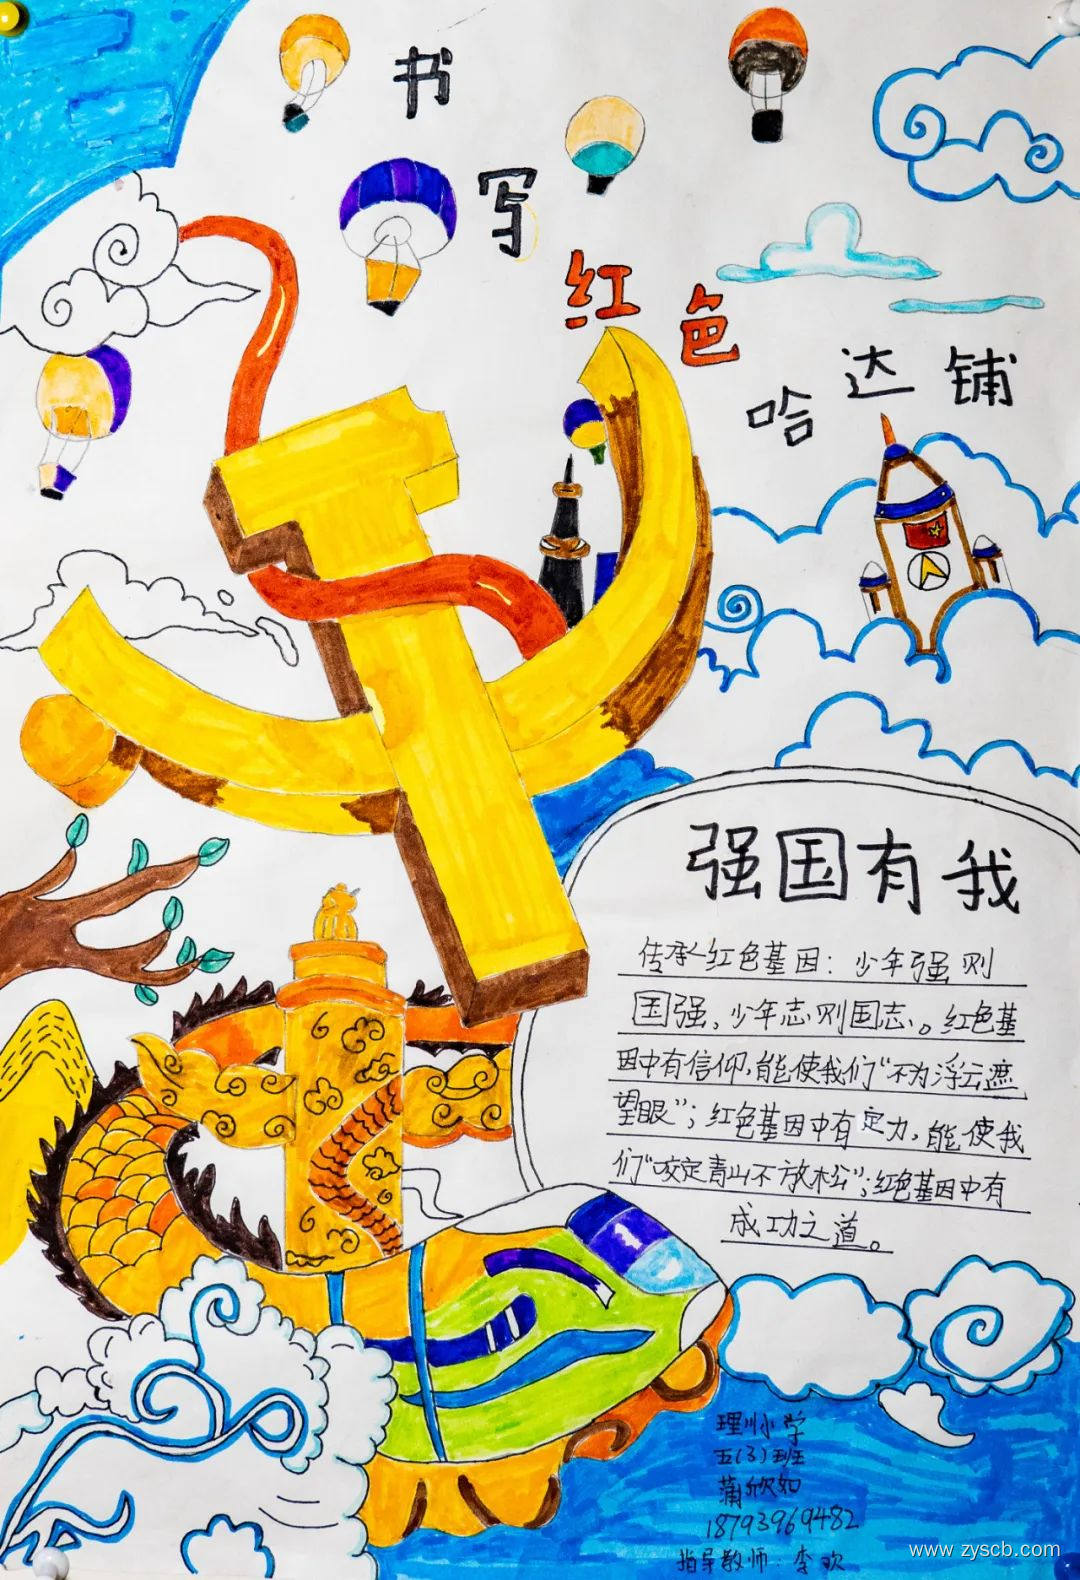 书写红色哈达铺
强国有我
传承红色基因：少年强则
国强，少年志则国志。红色基
因中有信仰，能使我们“不为浮云遮
望眼”；红色基因中有定力，能使我
们“咬定青山不放松”；红色基因中有
成功之道。
理川小学
五（3）班
蒲欣如
18793969482
指导教师：李欢
www zyscb.com